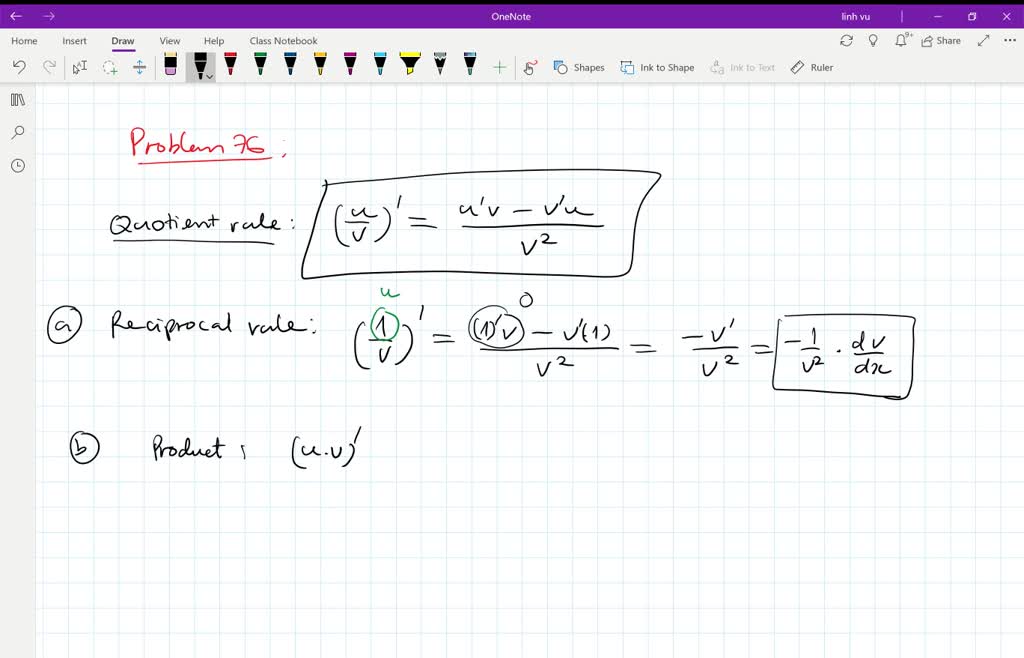 OneNote
linh vu
Home Insert Draw View Help Class Notebook
9+ Share
Shapes Ink to Shape Ink to Text Ruler
Problem 76:
Quotient rule: (u/v)' = (u'v - v'u)/v²
u
0
(a) Reciprocal rule: (1/v)' = ((1)'v - v'(1))/v² = -v'/v² = -1/v² · dv/dx
(b) Product: (u.v)'